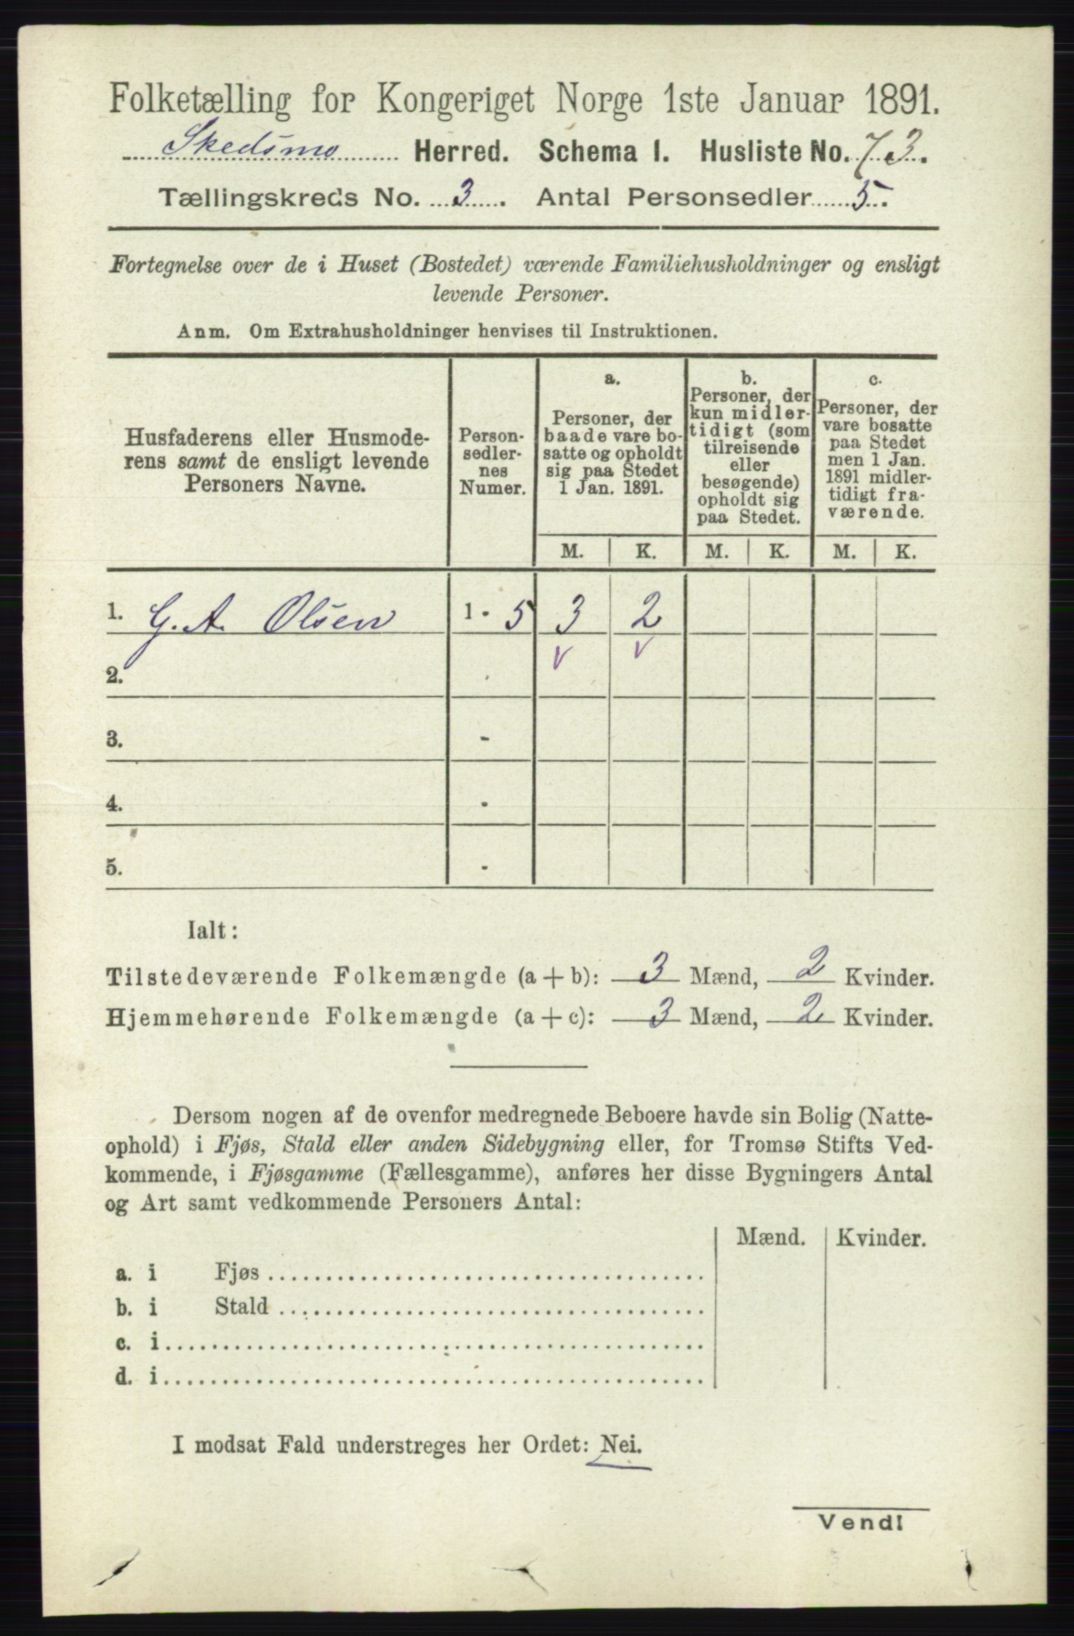 Folketælling for Kongeriget Norge 1ste Januar 1891.
Skedsmo Herred. Schema I. Husliste No. 73.
Tællingskreds No. 3. Antal Personsedler 5.
Fortegnelse over de i Huset (Bostedet) værende Familiehusholdninger og ensligt
levende Personer.
Anm. Om Extrahusholdninger henvises til Instruktionen.
Husfaderens eller Husmode-
rens samt de ensligt levende
Personers Navne.
Person-
sedler-
nes
Numer.
a.
Personer, der
baade vare bo-
satte og opholdt
sig paa Stedet
1 Jan. 1891.
b.
Personer, der
kun midler-
tidigt (som
tilreisende
eller
besøgende)
opholdt sig
paa Stedet.
c.
Personer, der
vare bosatte
paa Stedet
men 1 Jan.
1891 midler-
tidigt fra-
værende.
M. K. M. K. M. K.
1. G. A. Olsen 1 - 5 3 2
2. -
3. -
4. -
5. -
Ialt:
Tilstedeværende Folkemængde (a + b): 3 Mænd, 2 Kvinder.
Hjemmehørende Folkemængde (a + c): 3 Mænd, 2 Kvinder.
Dersom nogen af de ovenfor medregnede Beboere havde sin Bolig (Natte-
ophold) i Fjøs, Stald eller anden Sidebygning eller, for Tromsø Stifts Ved-
kommende, i Fjøsgamme (Fællesgamme), anføres her disse Bygningers Antal
og Art samt vedkommende Personers Antal:
Mænd. Kvinder.
a. i Fjøs
b. i Stald
c. i
d. i
I modsat Fald understreges her Ordet: Nei.
Vend!